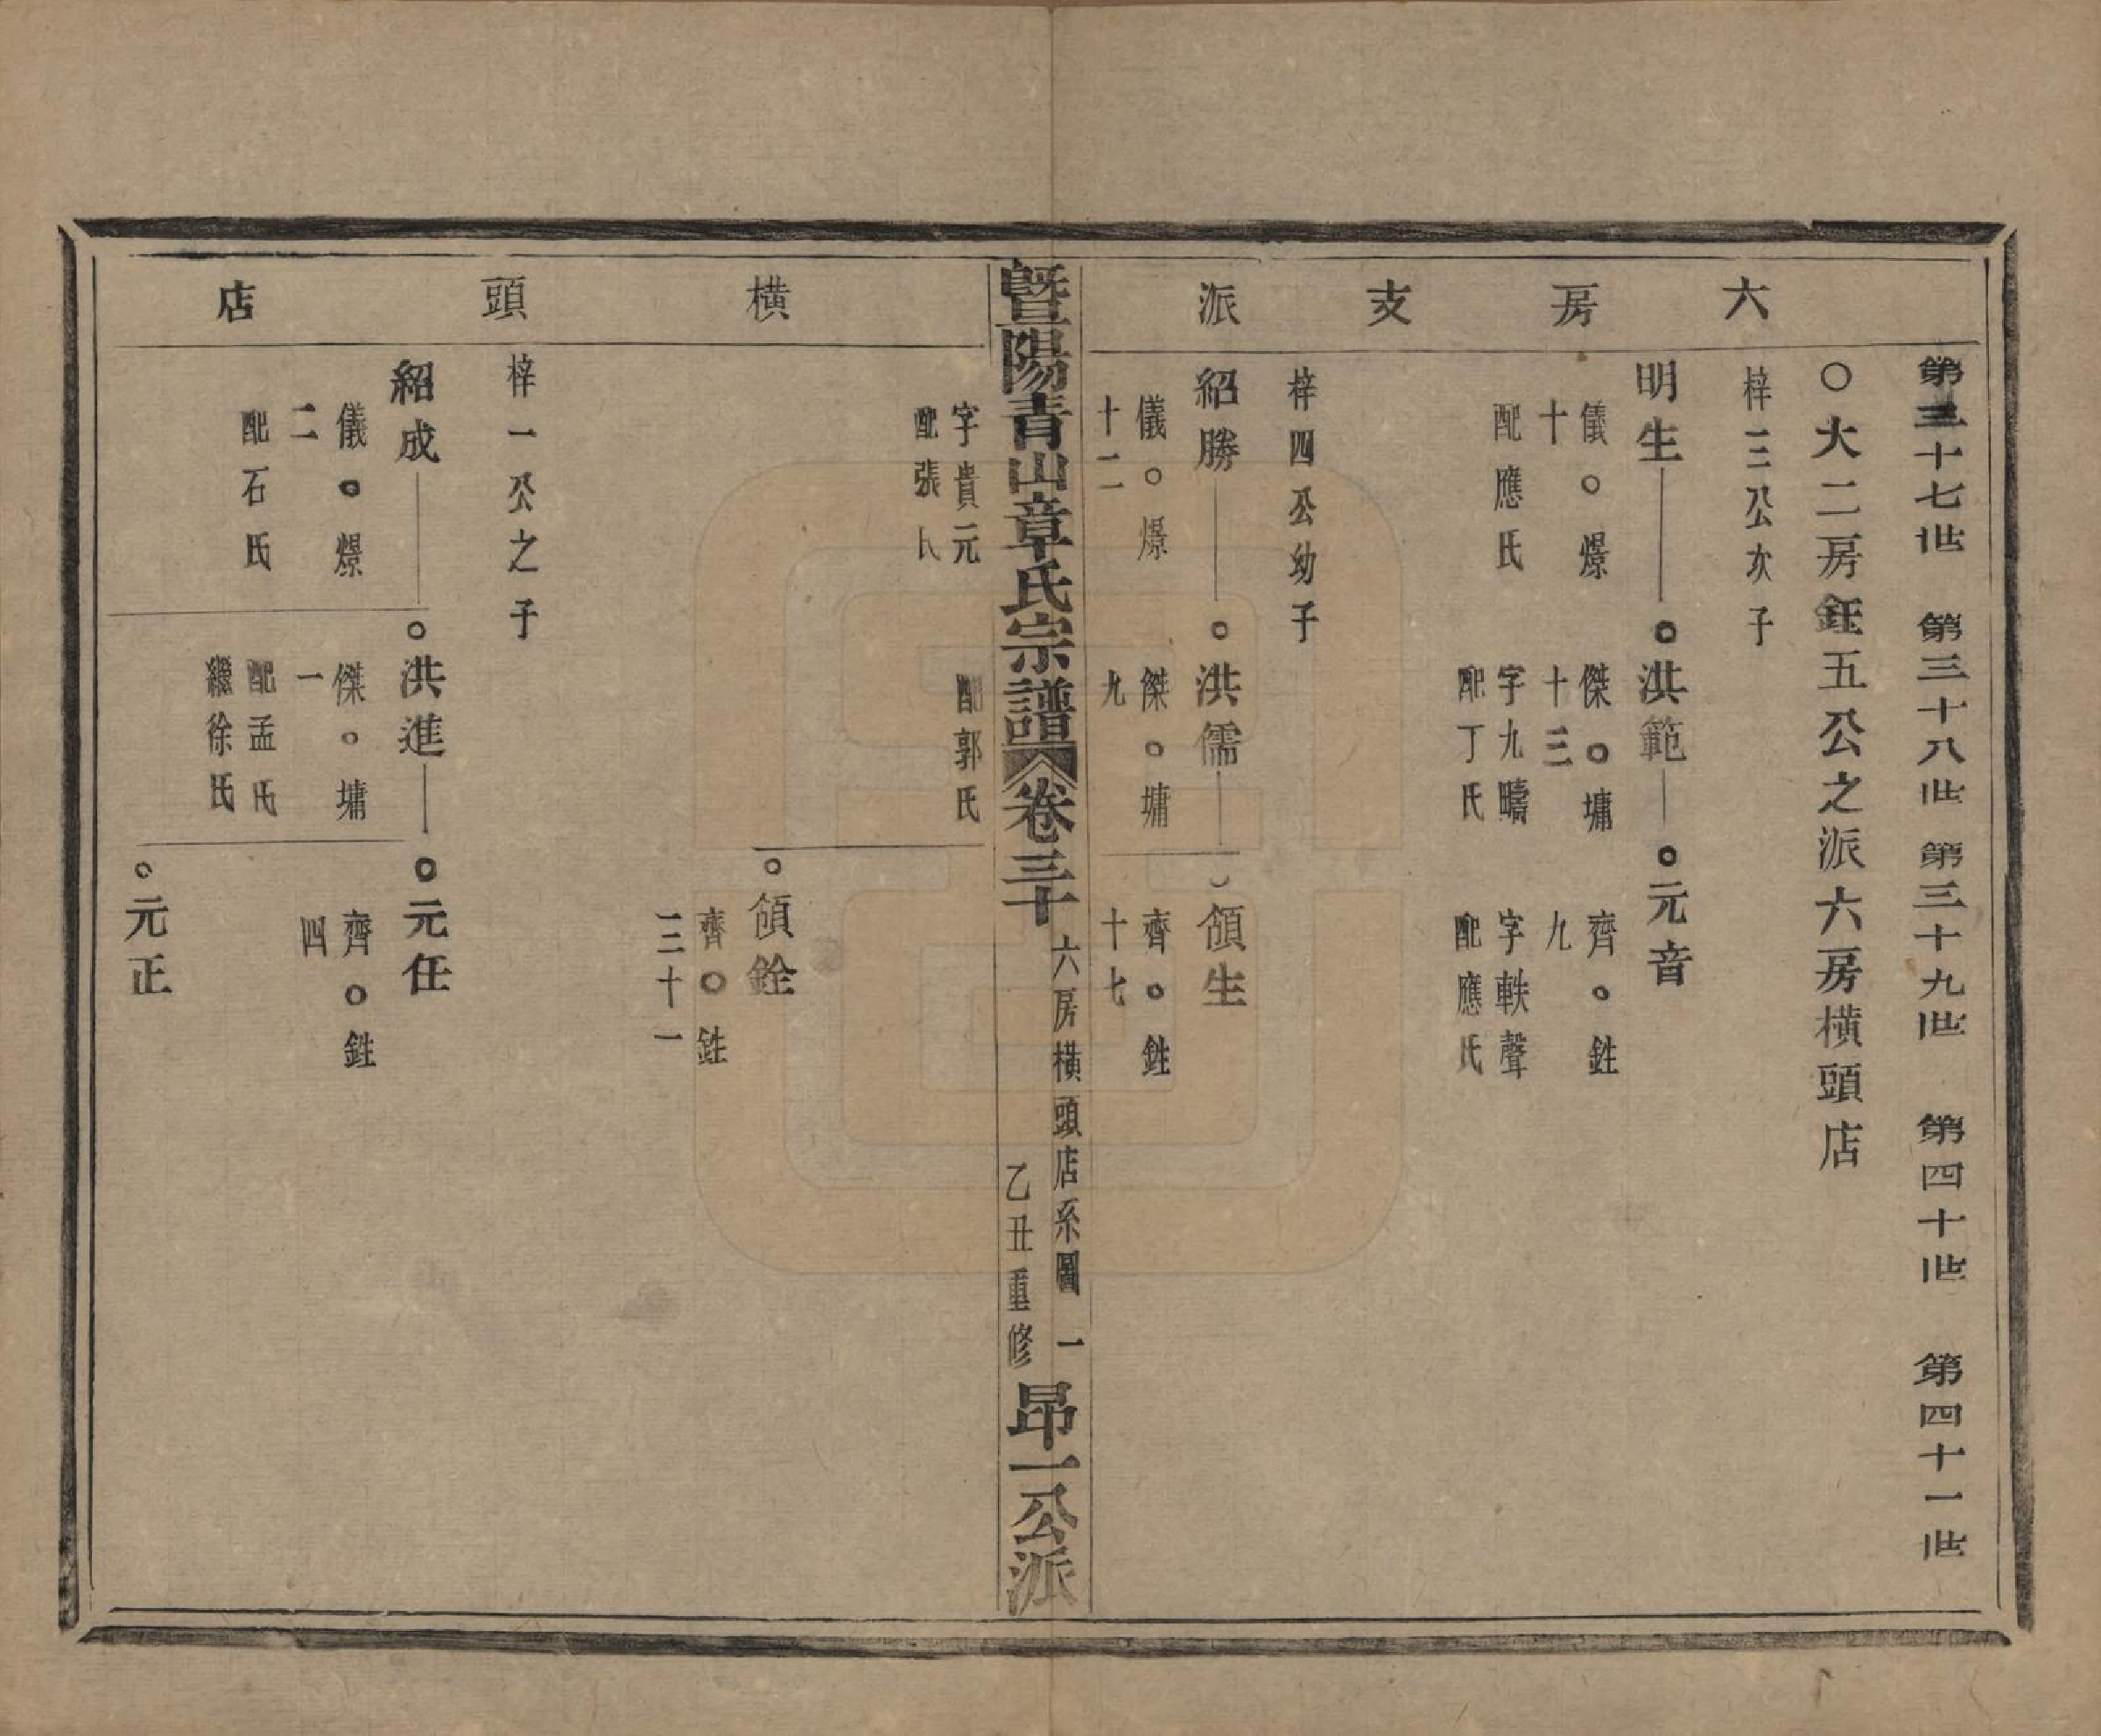 六房支派
第三十七世 第三十八世 第三十九世 第四十世 第四十一世
○大二房鈺五公之派六房横頭店
梓三公次子
明生
儀○燝
十
配應氏
○洪範
傑○墉
十三
字九疇
配丁氏
○元音
齊○銈
九
字軼聲
配應氏
梓四公幼子
紹勝
儀○燝
十二
○洪儒
傑○墉
九
○頜生
齊○銈
十七
暨陽青山章氏宗譜卷三十
六房横頭店系圖 一
乙丑重修
昂一公派
横頭店
字貴元
配張氏
配郭氏
○頜銓
齊○銈
三十一
梓一公之子
紹成
儀○燝
二
配石氏
○洪進
傑○墉
一
配孟氏
繼徐氏
○元任
齊○銈
四
○元正